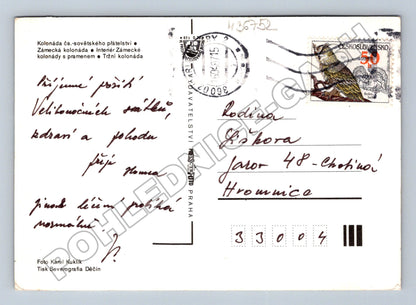 436752
Kolonáda čs.-sovětského přátelství •
Zámecká kolonáda • Interiér Zámecké
kolonády s pramenem • Tržní kolonáda
Příjemné prožití
Velikonočních svátků,
zdraví a pohodu
přeje
Honza
jinak léčím probíhá
normálně
Foto Karel Kuklík
Tisk Severografia Děčín
VYDAVATELSTVÍ
PRAHA
36001
ČESKOSLOVENSKO
50
Rodina
Liškova
Jarov 48 - Chotiná
Hromnice
33004
POHLEDNICE-CZ